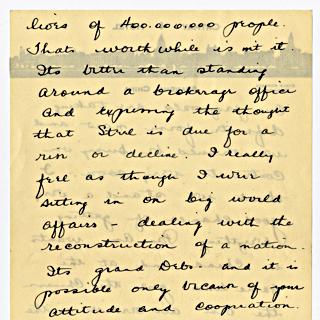 lives of 400.000.000 people.
Thats worth while is nt it.
Its better than standing
around a brokerage office
and expressing the thought
that Steel is due for a
rise or decline. I really
feel as though I were
sitting in on big world
affairs - dealing with the
reconstruction of a nation.
Its grand Debs. and it is
possible only because of your
attitude and cooperation.